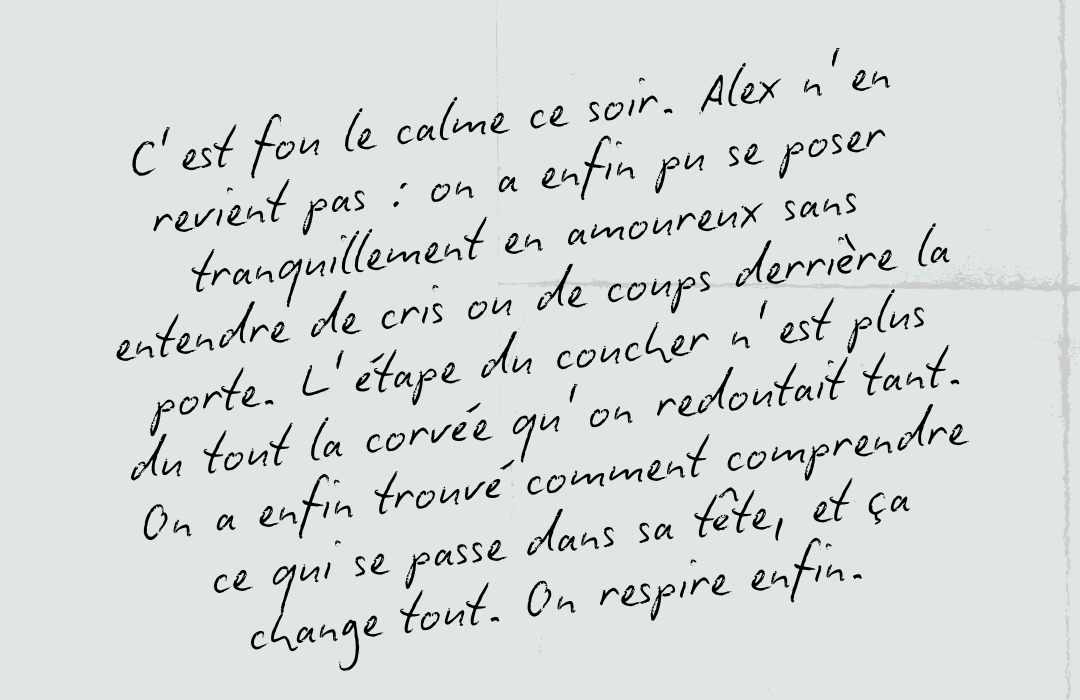 C'est fou le calme ce soir. Alex n'en
revient pas : on a enfin pu se poser
tranquillement en amoureux sans
entendre de cris ou de coups derrière la
porte. L'étape du coucher n'est plus
du tout la corvée qu'on redoutait tant.
On a enfin trouvé comment comprendre
ce qui se passe dans sa tête, et ça
change tout. On respire enfin.